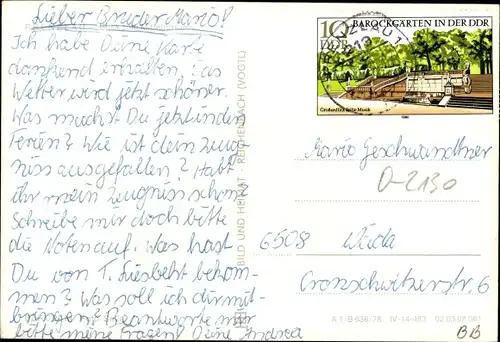 Lieber Bruder Mario!
Ich habe Deine Karte
dankend erhalten. Das
Wetter wird jetzt schöner.
Was machst Du jetzt in den
Ferien? Wie ist dein Zeug
niss ausgefallen? Habt
ihr mein Zeugniss schon
Schreibe mir doch bitte
die Noten auf. Was hast
Du von T. Liesbeht bekom-
men? Was soll ich dir mit-
bringen? Beantworte mir
bitte meine Fragen! Deine Andrea
BILD UND HEIMAT - REICHENBACH (VOGTL)
10
DDR
BAROCKGÄRTEN IN DER DDR
Großsedlitz Stille Musik
1980
Mario Geschwandtner
D-2130
6508 Weida
Cronschwitzerstr. 6
A 1/B 636/78 IV-14-483 02 03 08 081
BB